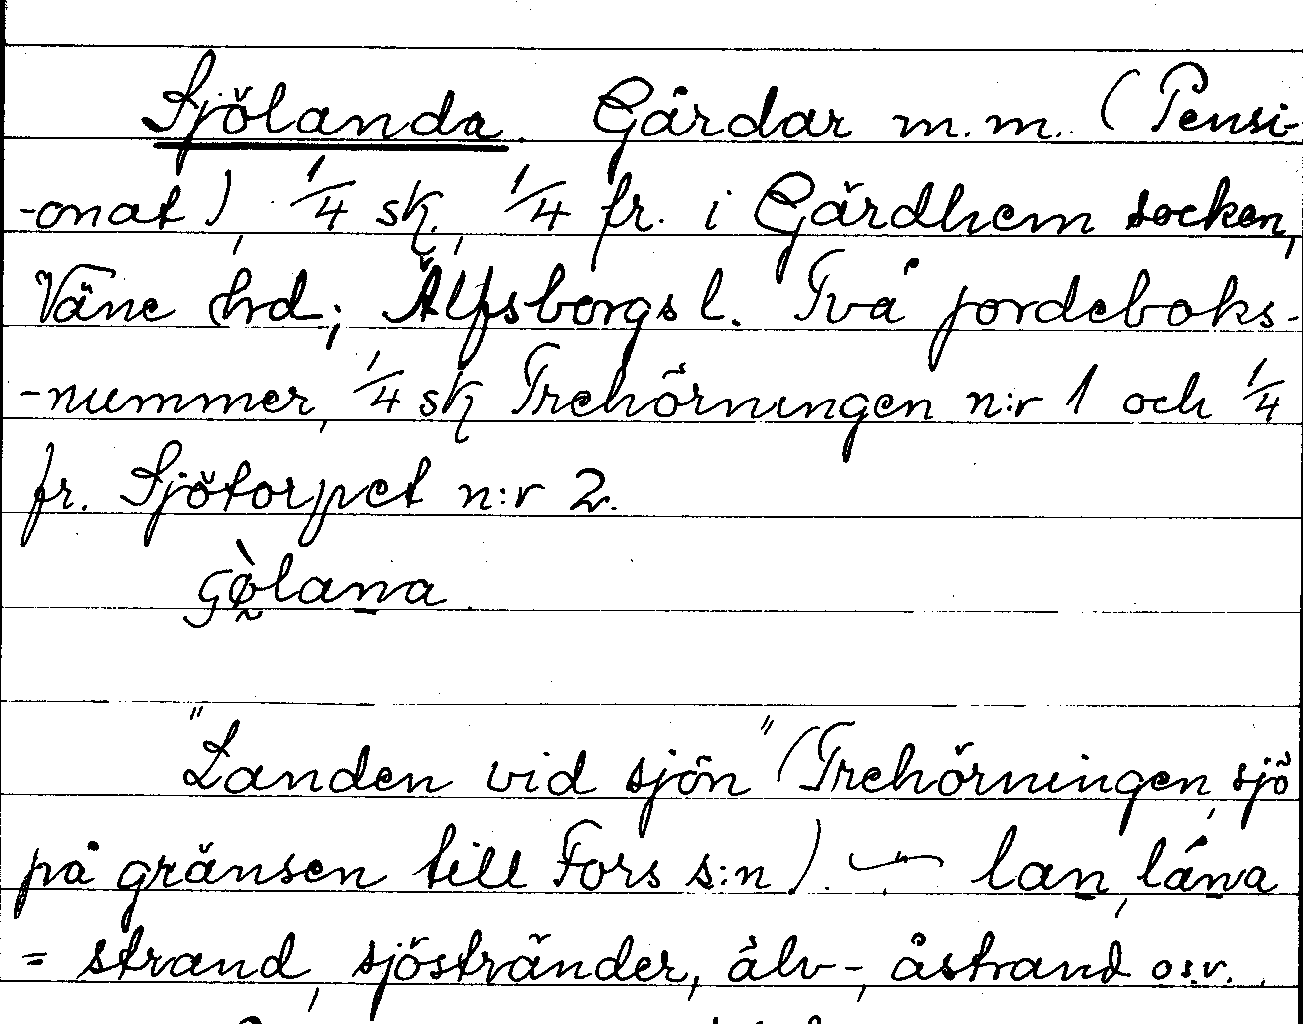 Sjölanda. Gårdar m.m. (Pensi-
-onat), 1/4 sk., 1/4 fr. i Gärdhem socken,
Väne hrd; Älfsborgs l. Två jordeboks-
-nummer, 1/4 sk Trehörningen n:r 1 och 1/4
fr. Sjötorpet n:r 2.
"Landen vid sjön" (Trehörningen, sjö
på gränsen till Fors s:n). — lan, lána
= strand, sjöstränder, älv-, åstrand o.s.v.